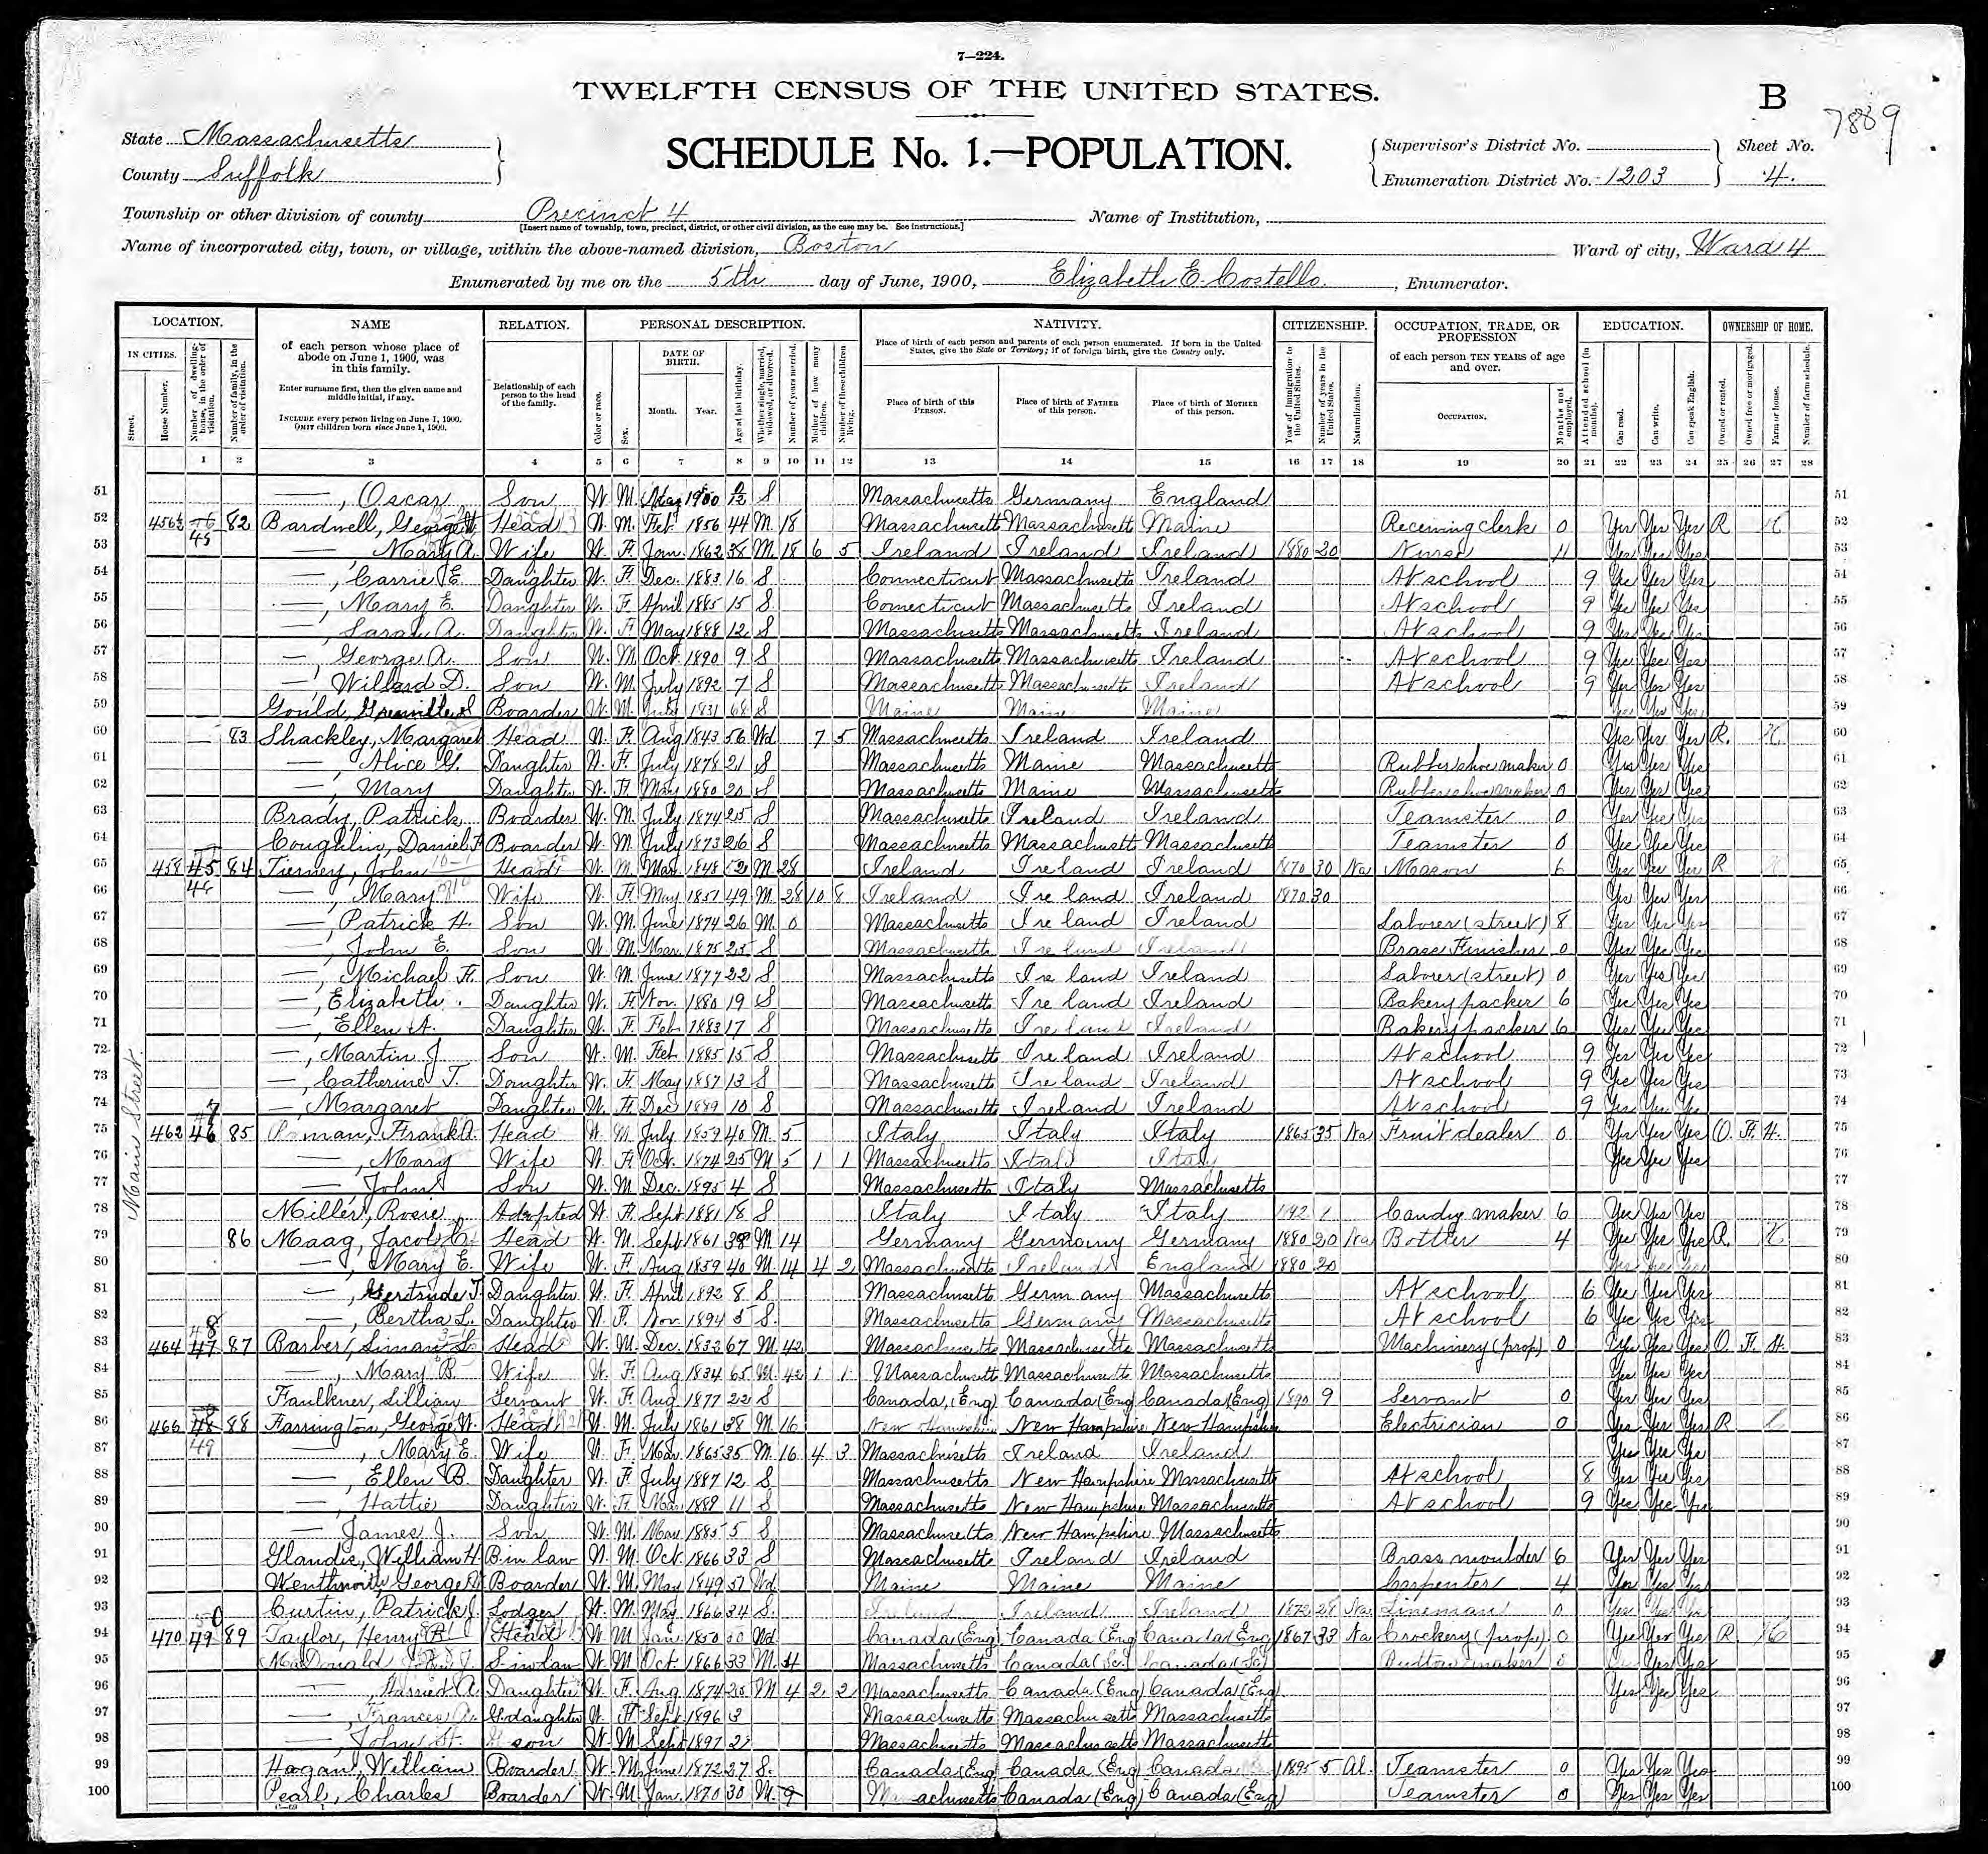 7—224.
TWELFTH CENSUS OF THE UNITED STATES.
B
7889
State Massachusetts
SCHEDULE No. 1.—POPULATION.
Supervisor's District No.
Sheet No.
County Suffolk
Enumeration District No. 1203
4.
Township or other division of county Precinct 4
Name of Institution,
[Insert name of township, town, precinct, district, or other civil division, as the case may be. See instructions.]
Name of incorporated city, town, or village, within the above-named division, Boston
Ward of city, Ward 4
Enumerated by me on the 5th day of June, 1900, Elizabeth E. Costello, Enumerator.
LOCATION. NAME RELATION. PERSONAL DESCRIPTION. NATIVITY. CITIZENSHIP. OCCUPATION, TRADE, OR PROFESSION EDUCATION. OWNERSHIP OF HOME.
IN CITIES.
Street.
House Number.
Number of dwelling-house, in the order of visitation.
Number of family, in the order of visitation.
of each person whose place of abode on June 1, 1900, was in this family.
Enter surname first, then the given name and middle initial, if any.
INCLUDE every person living on June 1, 1900.
OMIT children born since June 1, 1900.
Relationship of each person to the head of the family.
Color or race.
Sex.
DATE OF BIRTH.
Month. Year.
Age at last birthday.
Whether single, married, widowed, or divorced.
Number of years married.
Mother of how many children.
Number of these children living.
Place of birth of each person and parents of each person enumerated. If born in the United States, give the State or Territory; if of foreign birth, give the Country only.
Place of birth of this PERSON.
Place of birth of FATHER of this person.
Place of birth of MOTHER of this person.
Year of immigration to the United States.
Number of years in the United States.
Naturalization.
of each person TEN YEARS of age and over.
OCCUPATION.
Months not employed.
Attended school (in months).
Can read.
Can write.
Can speak English.
Owned or rented.
Owned free or mortgaged.
Farm or house.
Number of farm schedule.
1 2 3 4 5 6 7 8 9 10 11 12 13 14 15 16 17 18 19 20 21 22 23 24 25 26 27 28
Main Street.
51 —, Oscar Son W. M. May 1900 0/12 S Massachusetts Germany England 51
52 456½ 45 82 Bardwell, George Head W. M. Feb. 1856 44 M. 18 Massachusetts Massachusetts Maine Receiving clerk 0 Yes Yes Yes R H 52
53 —, Mary A. Wife W. F. Jan. 1862 38 M. 18 6 5 Ireland Ireland Ireland 1880 20 Nurse 4 Yes Yes Yes 53
54 —, Carrie E. Daughter W. F. Dec. 1883 16 S Connecticut Massachusetts Ireland At school 9 Yes Yes Yes 54
55 —, Mary E. Daughter W. F. April 1885 15 S. Connecticut Massachusetts Ireland At school 9 Yes Yes Yes 55
56 —, Sarah A. Daughter W. F. May 1888 12 S Massachusetts Massachusetts Ireland At school 9 Yes Yes Yes 56
57 —, George A. Son W. M. Oct. 1890 9 S Massachusetts Massachusetts Ireland At school 9 Yes Yes Yes 57
58 —, Willard D. Son W. M. July 1892 7 S Massachusetts Massachusetts Ireland At school 9 Yes Yes Yes 58
59 Gould, Boarder W. M. July 1831 68 S Maine Maine Maine Yes Yes Yes 59
60 — 83 Shackley, Margaret Head W. F. Aug 1843 56 Wd 7 5 Massachusetts Ireland Ireland Yes Yes Yes R. H. 60
61 —, Alice G. Daughter W. F. July 1878 21 S Massachusetts Maine Massachusetts Rubber shoe maker 0 Yes Yes Yes 61
62 —, Mary Daughter W. F. May 1880 20 S Massachusetts Maine Massachusetts Rubber shoe maker 0 Yes Yes Yes 62
63 Brady, Patrick Boarder W. M. July 1874 25 S Massachusetts Ireland Ireland Teamster 0 Yes Yes Yes 63
64 Coughlin, Daniel F. Boarder W. M. July 1873 26 S Massachusetts Massachusetts Massachusetts Teamster 0 Yes Yes Yes 64
65 458 45 84 Tierney, John Head W. M. Mar. 1848 52 M. 28 Ireland Ireland Ireland 1870 30 Na Mason 6 Yes Yes Yes R H 65
66 46 —, Mary Wife W. F. May 1851 49 M. 28 10 8 Ireland Ireland Ireland 1870 30 Yes Yes Yes 66
67 —, Patrick H. Son W. M. June 1874 26 M. 0 Massachusetts Ireland Ireland Laborer (street) 8 Yes Yes Yes 67
68 —, John E. Son W. M. Mar. 1875 25 S Massachusetts Ireland Ireland Brass Finisher 0 Yes Yes Yes 68
69 —, Michael F. Son W. M. June 1877 22 S Massachusetts Ireland Ireland Laborer (street) 0 Yes Yes Yes 69
70 —, Elizabeth. Daughter W. F. Nov. 1880 19 S Massachusetts Ireland Ireland Bakery packer 6 Yes Yes Yes 70
71 —, Ellen A. Daughter W. F. Feb. 1883 17 S Massachusetts Ireland Ireland Bakery packer 6 Yes Yes Yes 71
72 —, Martin J. Son W. M. Feb. 1885 15 S Massachusetts Ireland Ireland At school 9 Yes Yes Yes 72
73 —, Catherine T. Daughter W. F. May 1887 13 S Massachusetts Ireland Ireland At school 9 Yes Yes Yes 73
74 —, Margaret Daughter W. F. Dec 1889 10 S Massachusetts Ireland Ireland At school 9 Yes Yes Yes 74
75 462 46 47 85 Frank A. Head W. M. July 1859 40 M. 5 Italy Italy Italy 1865 35 Na Fruit dealer 0 Yes Yes Yes O. F. H. 75
76 —, Mary Wife W. F. Oct. 1874 25 M 5 1 1 Massachusetts Italy Italy Yes Yes Yes 76
77 —, John Son W. M. Dec. 1895 4 S Massachusetts Italy Massachusetts 77
78 Miller, Rosie Adopted W. F. Sept 1881 18 S Italy Italy Italy Candy maker 6 Yes Yes Yes 78
79 86 Maag, Jacob C. Head W. M. Sept 1861 38 M 14 Germany Germany Germany 1880 20 Na Bottler 4 Yes Yes Yes R. H 79
80 —, Mary E. Wife W. F. Aug 1859 40 M. 14 4 2 Massachusetts Ireland England 1880 20 Yes Yes Yes 80
81 —, Gertrude T. Daughter W. F. April 1892 8 S. Massachusetts Germany Massachusetts At school 6 Yes Yes Yes 81
82 —, Bertha L. Daughter W. F. Nov. 1894 5 S. Massachusetts Germany Massachusetts At school 6 Yes Yes Yes 82
83 464 47 48 87 Barber, Head W. M. Dec. 1832 67 M 42 Massachusetts Massachusetts Massachusetts Machinery (prop) 0 Yes Yes Yes O. F. H. 83
84 —, Mary B. Wife W. F. Aug 1834 65 M. 42 1 1 Massachusetts Massachusetts Massachusetts Yes Yes Yes 84
85 Faulkner, Lillian Servant W. F. Aug 1877 22 S Canada, (Eng) Canada (Eng Canada (Eng) 1890 9 Servant 0 Yes Yes Yes 85
86 466 48 88 Farrington, George W. Head W. M. July 1861 38 M. 16 New Hampshire New Hampshire New Hampshire Electrician 0 Yes Yes Yes R 86
87 49 —, Mary E. Wife W. F. Mar. 1865 35 M. 16 4 3 Massachusetts Ireland Ireland Yes Yes Yes 87
88 —, Ellen B. Daughter W. F. July 1887 12 S Massachusetts New Hampshire Massachusetts At school 8 Yes Yes Yes 88
89 —, Hattie Daughter W. F. Mar. 1889 11 S Massachusetts New Hampshire Massachusetts At school 9 Yes Yes Yes 89
90 — James J. Son W. M. Mar 1885 5 S Massachusetts New Hampshire Massachusetts 90
91 Glandis, William H. B in law W. M. Oct. 1866 33 S Massachusetts Ireland Ireland Brass moulder 6 Yes Yes Yes 91
92 Wenthworth, George Boarder W. M. Mar 1849 51 Wd Maine Maine Maine Carpenter 4 Yes Yes Yes 92
93 Curtin, Patrick J. Lodger W. M. May 1866 34 S. Ireland Ireland Ireland 1872 28 Na Lineman 0 Yes Yes Yes 93
94 470 49 50 89 Taylor, Henry B. Head W. M. Jan. 1850 50 Wd. Canada (Eng) Canada (Eng Canada (Eng 1867 33 Na Crockery (prop) 0 Yes Yes Yes R H 94
95 MacDonald S in law W. M. Oct. 1866 33 M. 4 Massachusetts Canada (Sc.) Canada (Sc) 0 Yes Yes 95
96 —, Harriet A. Daughter W. F. Aug 1874 25 M 4 2 2 Massachusetts Canada (Eng) Canada (Eng Yes Yes Yes 96
97 —, Frances A. G. daughter W. F. Sept 1896 3 Massachusetts Massachusetts Massachusetts 97
98 —, John H. G son W. M. Sept 1897 2 Massachusetts Massachusetts Massachusetts 98
99 Hagan, William Boarder W. M. June 1872 27 S. Canada (Eng Canada (Eng) Canada 1895 5 Al. Teamster 0 Yes Yes Yes 99
100 Pearl, Charles Boarder W. M. Jan. 1870 30 M. 9 Massachusetts Canada (Eng) Canada (Eng) Teamster 0 Yes Yes Yes 100